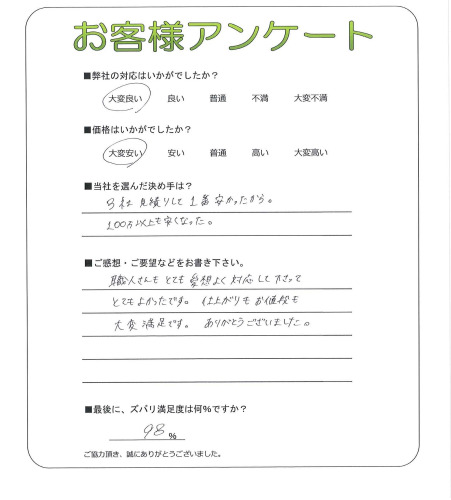 お客様アンケート
■弊社の対応はいかがでしたか？
大変良い 良い 普通 不満 大変不満
■価格はいかがでしたか？
大変安い 安い 普通 高い 大変高い
■当社を選んだ決め手は？
3社見積りして1番安かったから。
100万以上も安くなった。
■ご感想・ご要望などをお書き下さい。
職人さんもとても愛想よく対応して下さって
とてもよかったです。仕上がりもお値段も
大変満足です。ありがとうございました。
■最後に、ズバリ満足度は何%ですか？
98%
ご協力頂き、誠にありがとうございました。